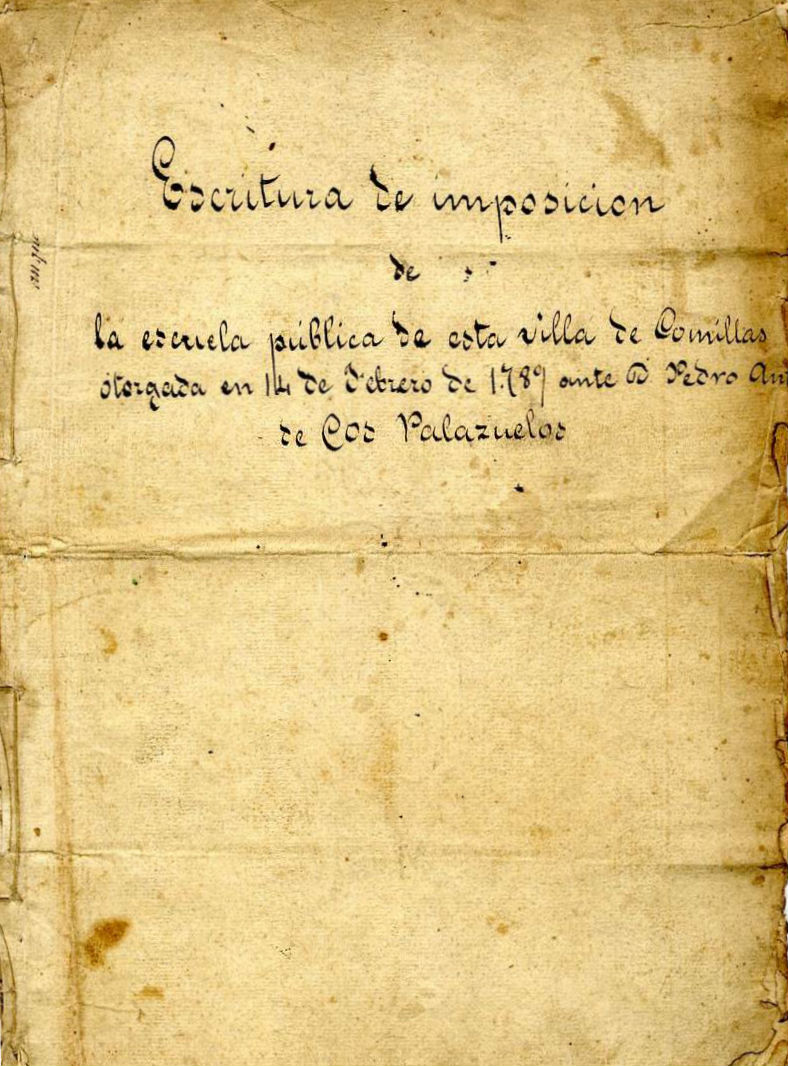 Escritura de imposicion
de
la escuela pública de esta villa de Comillas
otorgada en 14 de Febrero de 1789 ante D Pedro Ant
de Cos Palazuelos